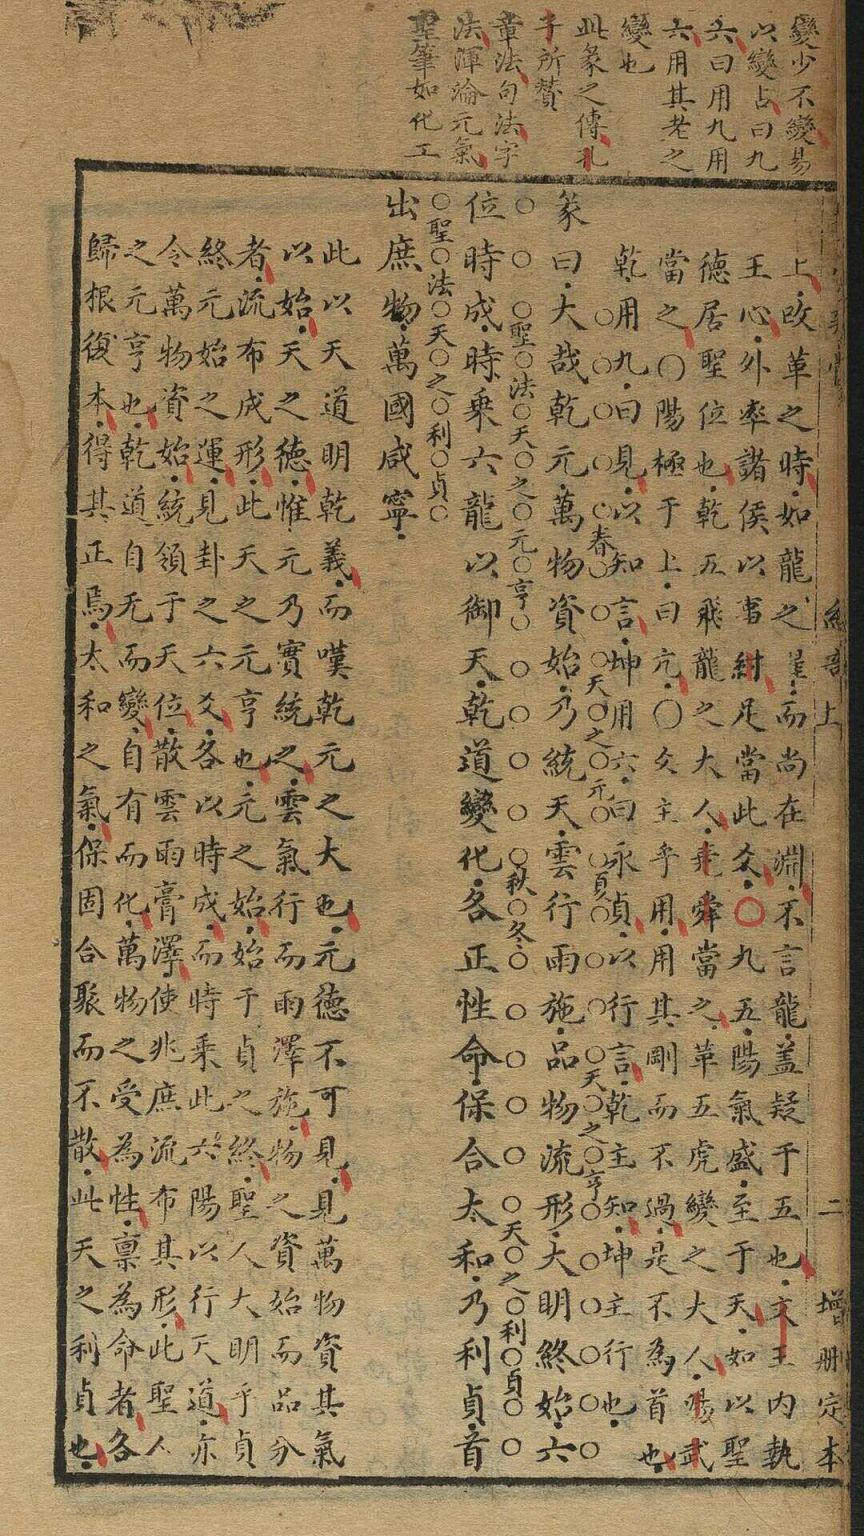 變少不變易
以變占曰九
六曰用九用
六用其老之
變也
此彖之傳孔
子所贊
章法句法字
法渾淪元氣
聖筆如化工
上改革之時如龍之而尚在淵不言龍蓋疑于五也文王內執
王心外率諸侯以事紂足當此爻〇九五陽氣盛至于天如以聖
德居聖位也乾五飛龍之大人堯舜當之革五虎變之大人湯武
當之〇陽極于上曰亢〇爻主乎用用其剛而不過是不為首也
乾用九曰見以知言坤用六曰永貞以行言乾主知坤主行也
春 天之元 夏 天之亨
彖曰大哉乾元萬物資始乃統天雲行雨施品物流形大明終始六
聖法天之元亨 秋冬 天之利貞
位時成時乘六龍以御天乾道變化各正性命保合太和乃利貞首
聖法天之利貞
出庶物萬國咸寧
此以天道明乾義而嘆乾元之大也元德不可見見萬物資其氣
以始天之德惟元乃實統之雲氣行而雨澤施物之資始而品分
者流布成形此天之元亨也元之始始于貞之終聖人大明乎貞
終元始之運見卦之六爻各以時成而時乘此六陽以行天道亦
令萬物資始統領于天位散雲雨膏澤使兆庶流布其形此聖人
之元亨也乾道自无而變自有而化萬物之受為性稟為命者各
歸根復本得其正焉太和之氣保固合聚而不散此天之利貞也
上
二
增刪定本